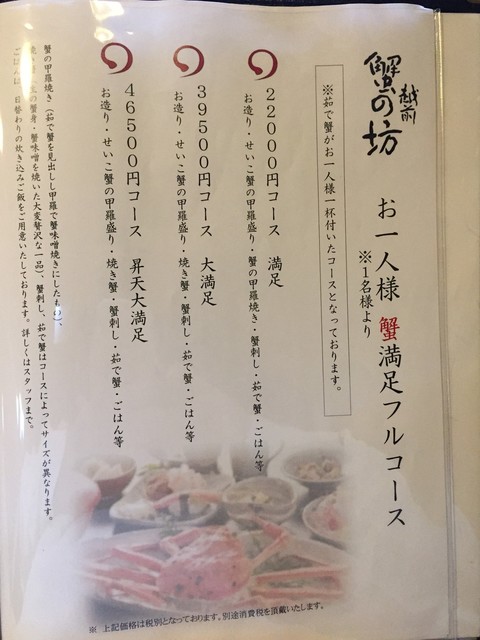 越前
蟹の坊
お一人様 蟹満足フルコース
※1名様より
※茹で蟹がお一人様一杯付いたコースとなっております。
22000円コース 満足
お造り・せいこ蟹の甲羅盛り・蟹の甲羅焼き・蟹刺し・茹で蟹・ごはん等
39500円コース 大満足
お造り・せいこ蟹の甲羅盛り・焼き蟹・蟹刺し・茹で蟹・ごはん等
46500円コース 昇天大満足
お造り・せいこ蟹の甲羅盛り・焼き蟹・蟹刺し・茹で蟹・ごはん等
蟹の甲羅焼き（茹で蟹を見出しし甲羅で蟹味噌焼きにしたもの）、
の蟹身・蟹味噌を焼いた大変贅沢な一品）、蟹刺し、茹で蟹はコースによってサイズが異なります。
ごはんは、日替わりの炊き込みご飯をご用意いたしております。詳しくはスタッフまで。
※ 上記価格は税別となっております。別途消費税を頂戴いたします。